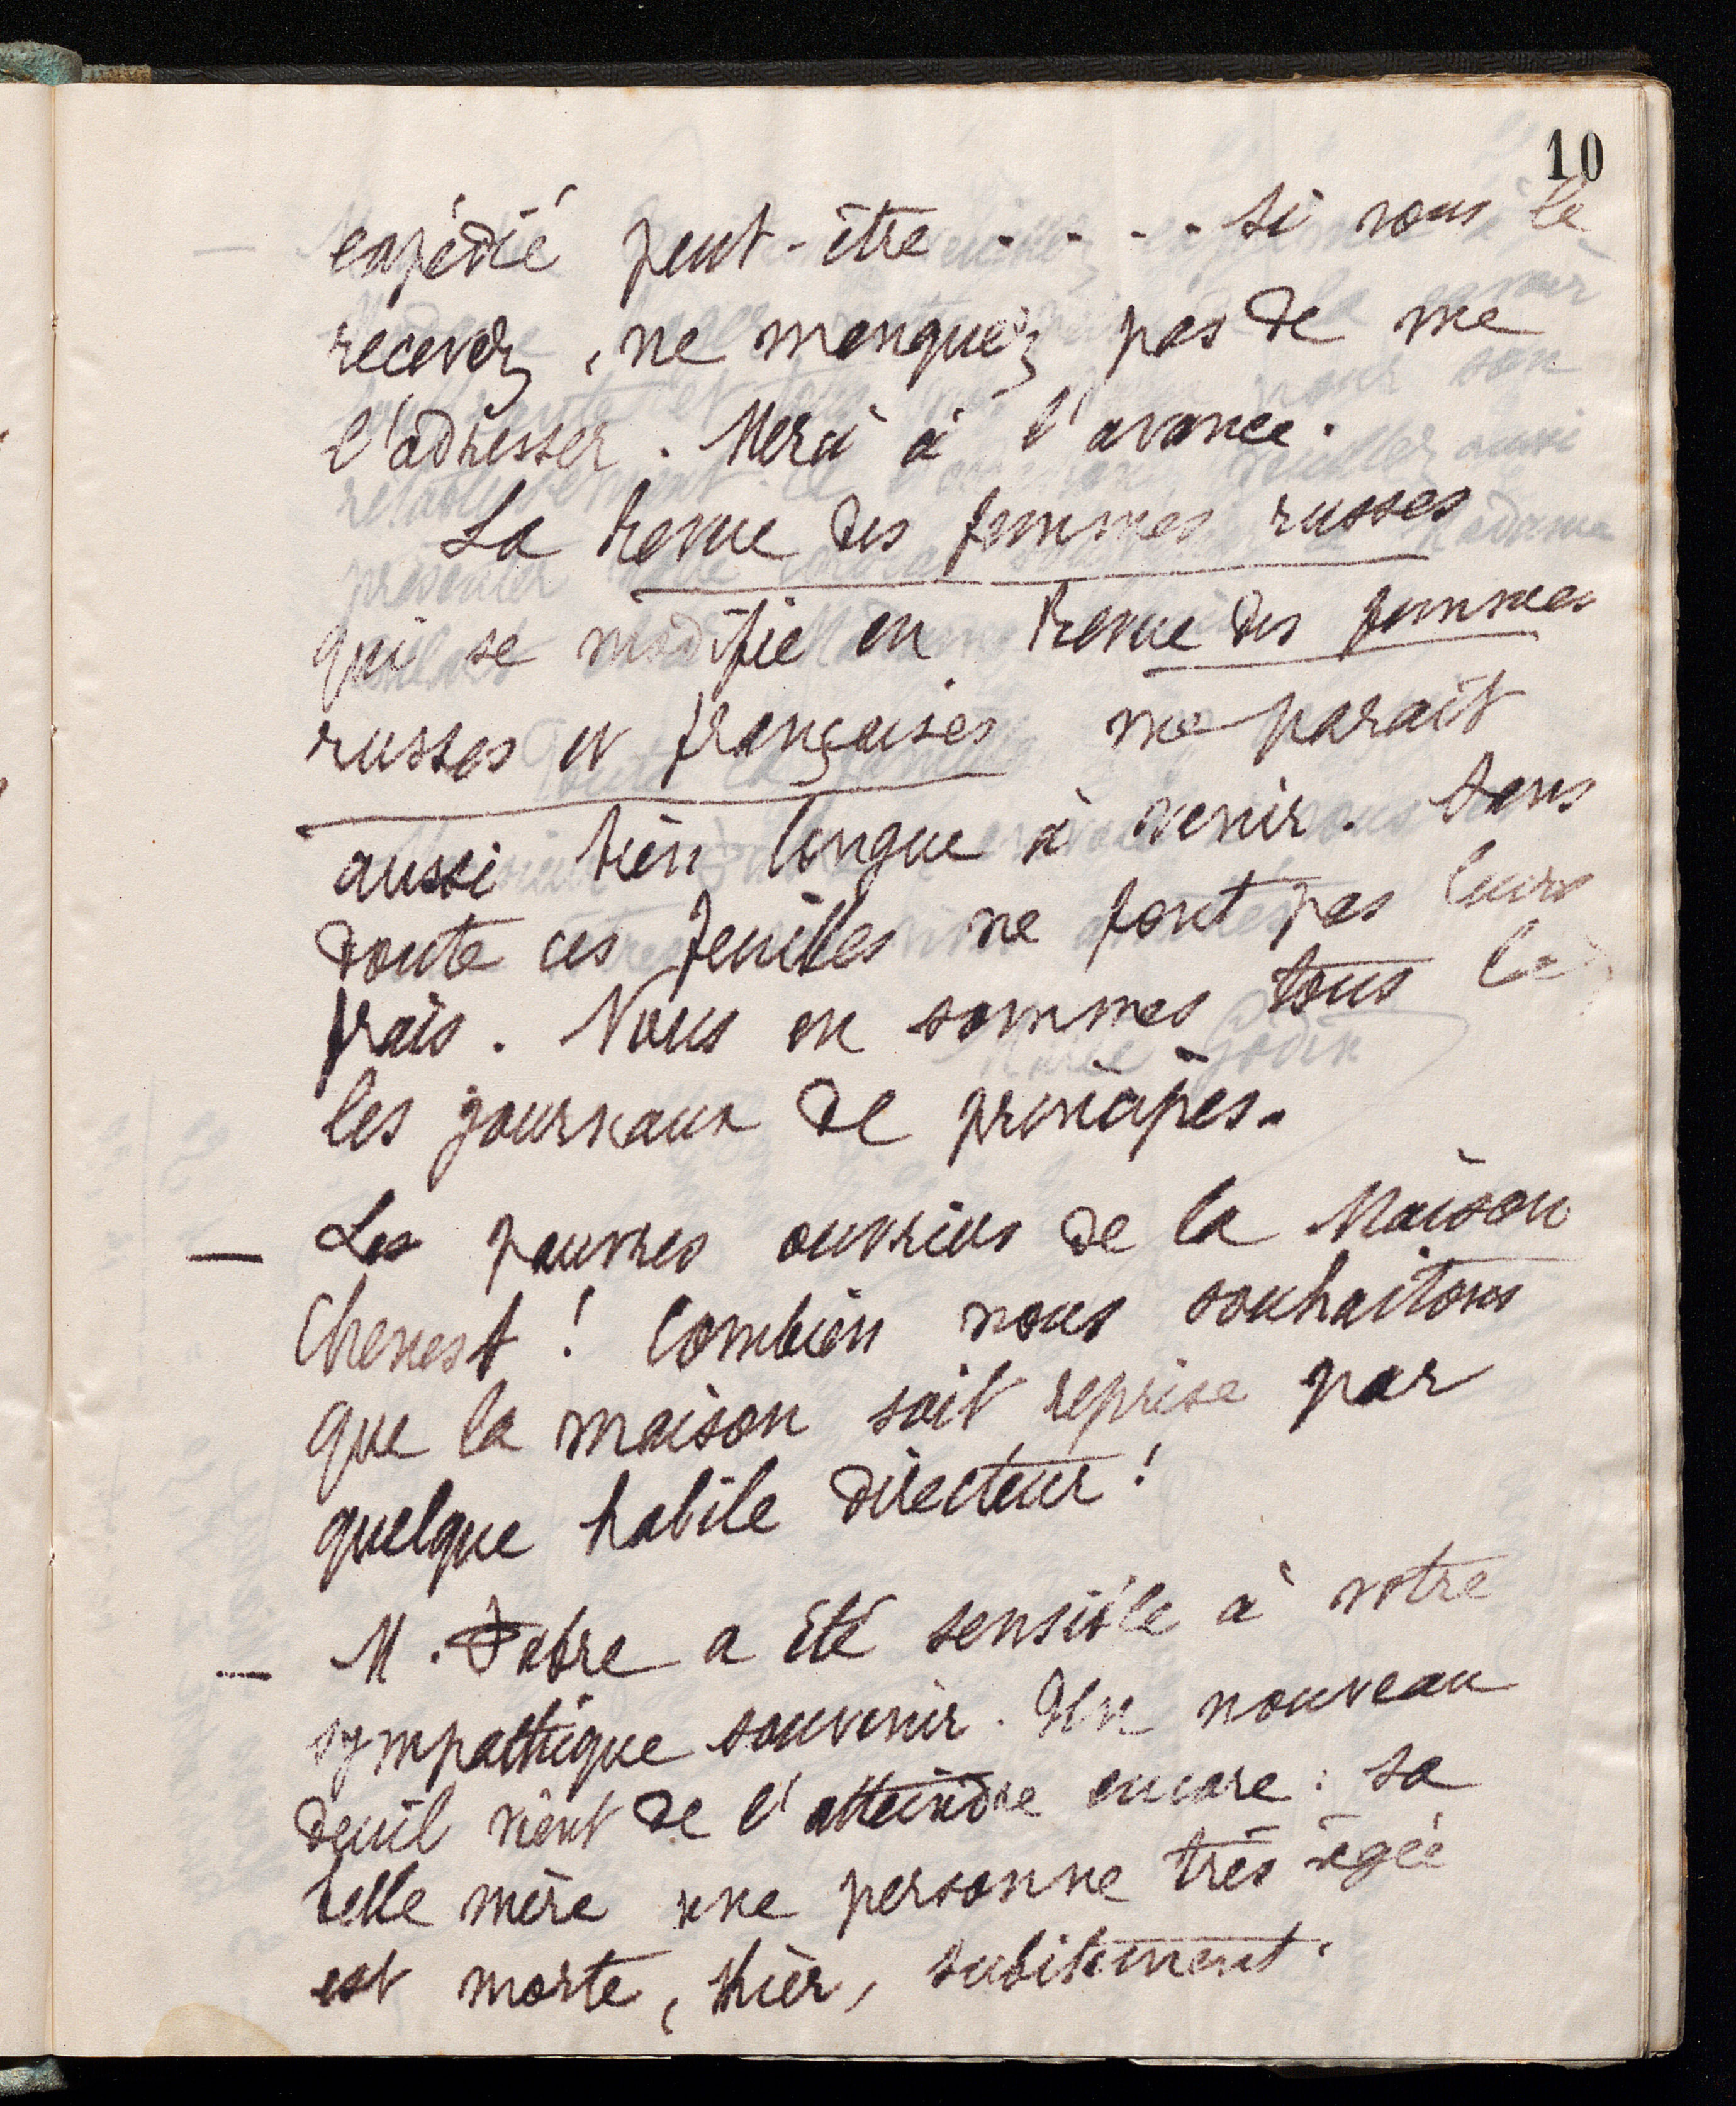 10
expédié peut-être . . . . Si vous le
recevez, ne manquez pas de me
l'adresser. Merci à l'avance.
La Revue des femmes russes
qui se modifie en Revue des femmes
russes et françaises me paraît
aussi bien longue à venir. Sans
doute ces feuilles ne font pas leurs
frais. Nous en sommes tous là
les journaux de principes.
— Les pauvres ouvriers de la Maison
Chenest ! Combien nous souhaitons
que la maison soit reprise par
quelque habile directeur !
— M. Fabre a été sensible à votre
sympathique souvenir. Un nouveau
deuil vient de l'atteindre encore : sa
belle mère une personne très âgée
est morte, hier, subitement.